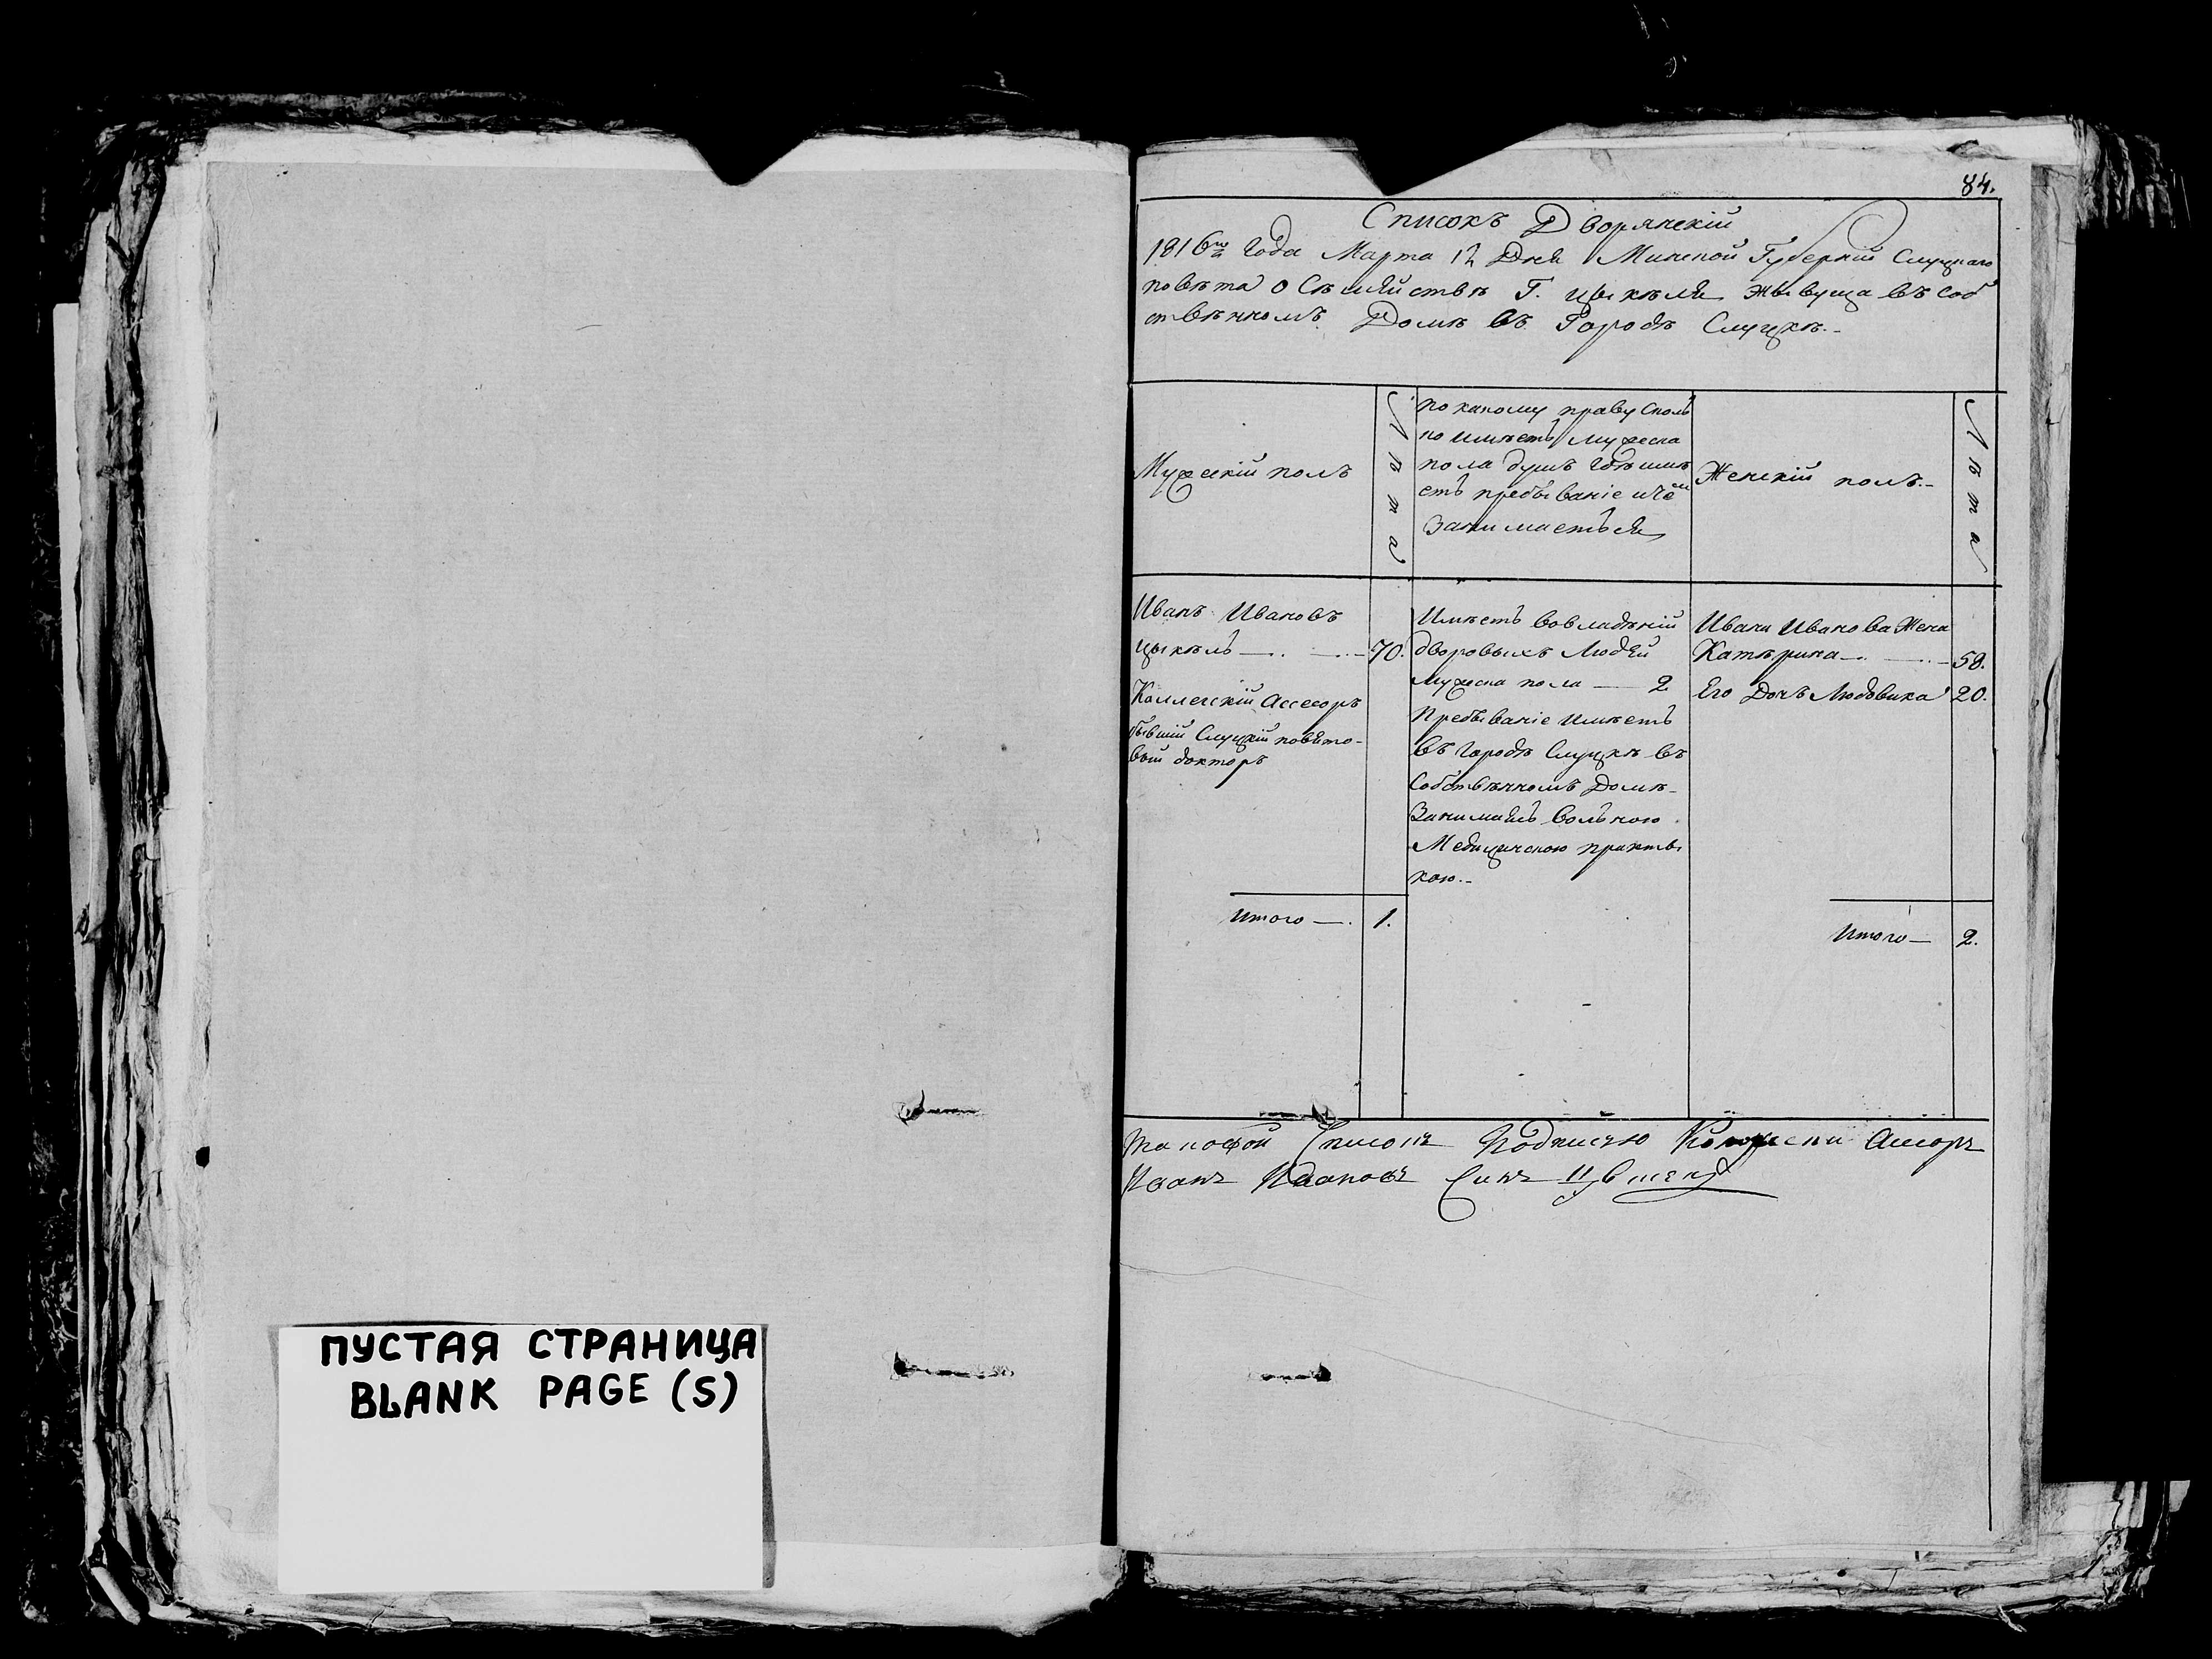 84.
Списокъ Дворянскій
1816го Года Марта 12 Дня Минской Губерніи Слуцкаго
повѣта о Сѣмѣйствѣ Г. цыкѣля жывуща въ соб
ствѣнномъ Домѣ въ Городѣ Слуцкѣ.-
Мужескій полъ
Лѣта
по какому праву сколь
ко имѣетъ мужеска
пола душъ гдѣ имѣ
етъ пребываніе и чѣм
занимаетъся
Женскій полъ.-
Лѣта
Иванъ Ивановъ
цыкѣль 70.
Коллескій Ассесоръ
бывшій Слуцкій повѣто-
вый докторъ
Имѣетъ вовладѣніи
дворовыхъ людѣй
мужеска пола — 2
Пребываніе имѣетъ
въ городѣ Слуцкѣ въ
Собствѣнномъ Домѣ-
Занимаясь вольною
Медицинскою практы
кою.-
Ивана Иванова Жена
Катѣрина 58.
Его Дочъ Людовика 20.
Итого —. 1.
Итого — 2.
таковой Списокъ Подписую
Иванъ Ивановъ Синъ
ПУСТАЯ СТРАНИЦА
BLANK PAGE (S)